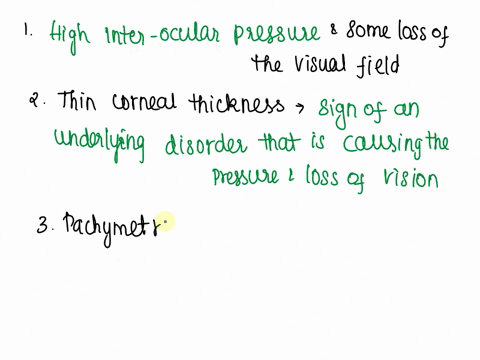 1. High inter-ocular pressure & some loss of
the visual field
2. Thin corneal thickness → sign of an
underlying disorder that is causing the
pressure & loss of vision
3. Pachymetr